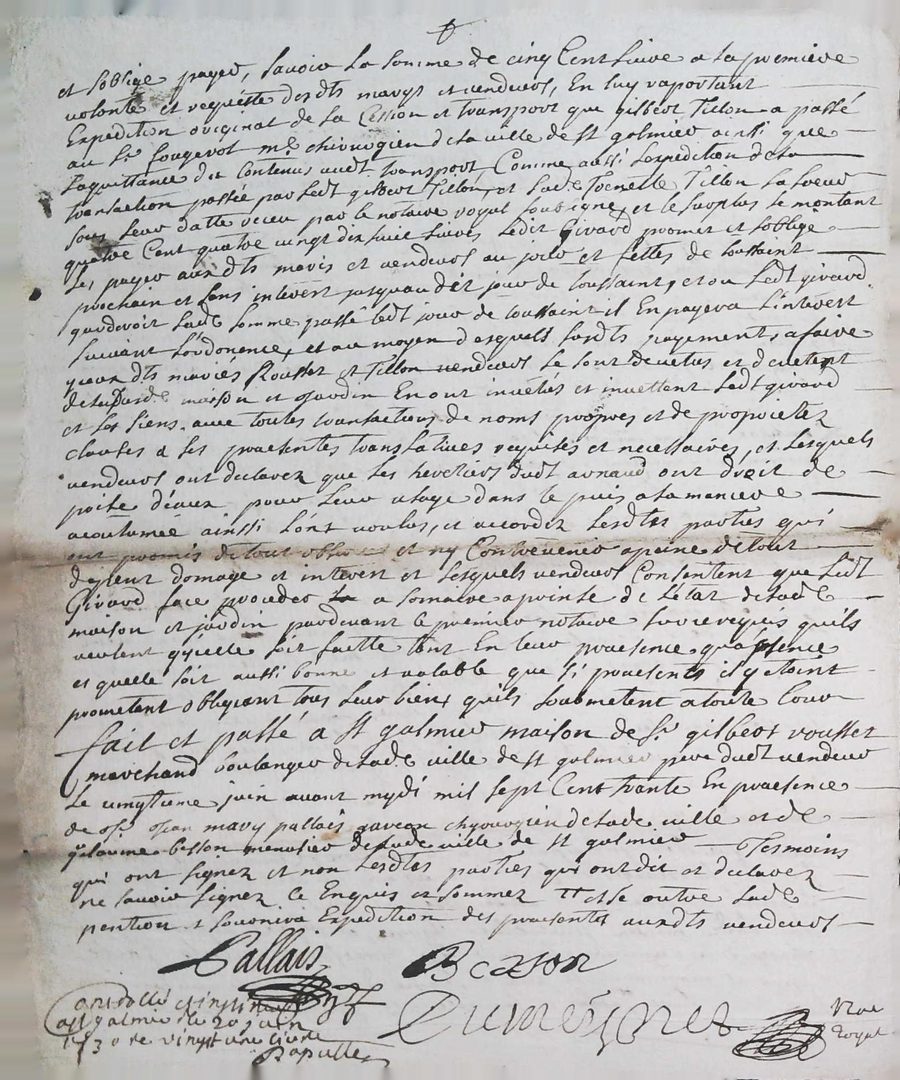 et soblige payer, savoir la somme de cinq Cent livre a la premiere
volonté et requeste desdts maryé et vendeurs, En luy raportant
Expedition original de la Cession et transport que gilbert Tillon a passé
au Sr fougerot me chirurgien de la ville de st galmier ainsi que
la quittance du Contenu audt transport Comme aussi Lexpedition de la
transaction passée par ledt gilbert Tillon, et lade Tillon sa soeur
sous leur datte receu par le notaire royal soubsigné, et le surplus se montant
quatre Cent quatre vingt dix huit livres ledit Girard promet et soblige
les payer auxdts mariés et vendeurs au jour et fettes de toussaint
prochain et sans interest jusquaudit jour de toussaint, et ou Ledt girard
garderoit lade somme passé ledt jour de toussaint il En payera Linterest
suivant Lordonence, et au moyen desquels susdts payements a faire
yceux dts mariés Rousset et Tillon vendeurs se sont devetus et devetent
de la susde maison et jardin En ont investis et investant Ledt girard
et les siens avec toutes translactions de noms propres et de proprietez
clauses a ses praesentes translatives requises et necessaires, et lesquels
vendeurs ont declarez que les heretiers dudt arnaud ont droit de
poise d'eaux pour leur usage dans le puis a la maniere
acoutumée ainssi Lont voulus, et accordez lesdtes parties qui
ont promis de tout observer et ny Contrevenir a peine de tout
depent domage et interest et lesquels vendeurs Consentent que Ledt
Girard face proceder a somaire aprinse de letat de lade
maison et jardin pardevant le premier notaire sur ce requis quils
veulent quicelle soit faitte tant En leur praesence qu'absence
et quelle soit aussi bonne et valable que si praesents il y etoint
prometant obligeant tous leur biens quils soubmetent a toute Cour
fait et passé a st galmier maison de Sr gilbert rousset
marchand boulanger de lade ville de st galmier pere dudt vendeur
le vingtieme juin avant mydi mil sept Cent trante En praesence
de Sr jean mary pallais garcon chyrurgien de lade ville et de
guilaume besson menusier de lade ville de st galmier Tesmoins
qui ont signez et non lesdtes parties qui ont dit et declarez
ne savoir signer Ce Enquis et sommez et se outre lade
pention fournira Expedition des praesentes auxdts vendeurs
Pallais Besson
Controllé et insinué
a st galmier le 20 juin
1730 re vingt une livre
Dumeynes Nre
royal